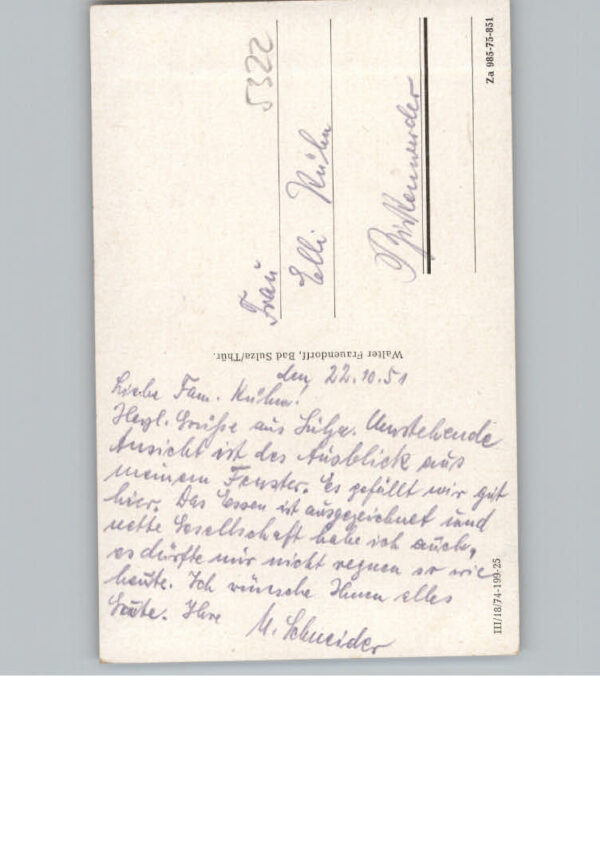 den 22.10.51
Liebe Fam. Kühn!
Herzl. Grüße aus Sulza. Umstehende
Ansicht ist der Ausblick aus
meinem Fenster. Es gefällt mir gut
hier. Das Essen ist ausgezeichnet und
nette Gesellschaft habe ich auch,
es dürfte nur nicht regnen so wie
heute. Ich wünsche Ihnen alles
Gute. Ihre
M. Schneider
Walter Frauendorff, Bad Sulza/Thür.
III/18/74-199-25
Frau
Elli Kühn
Birkenwerder
5322
Za 985-75-851